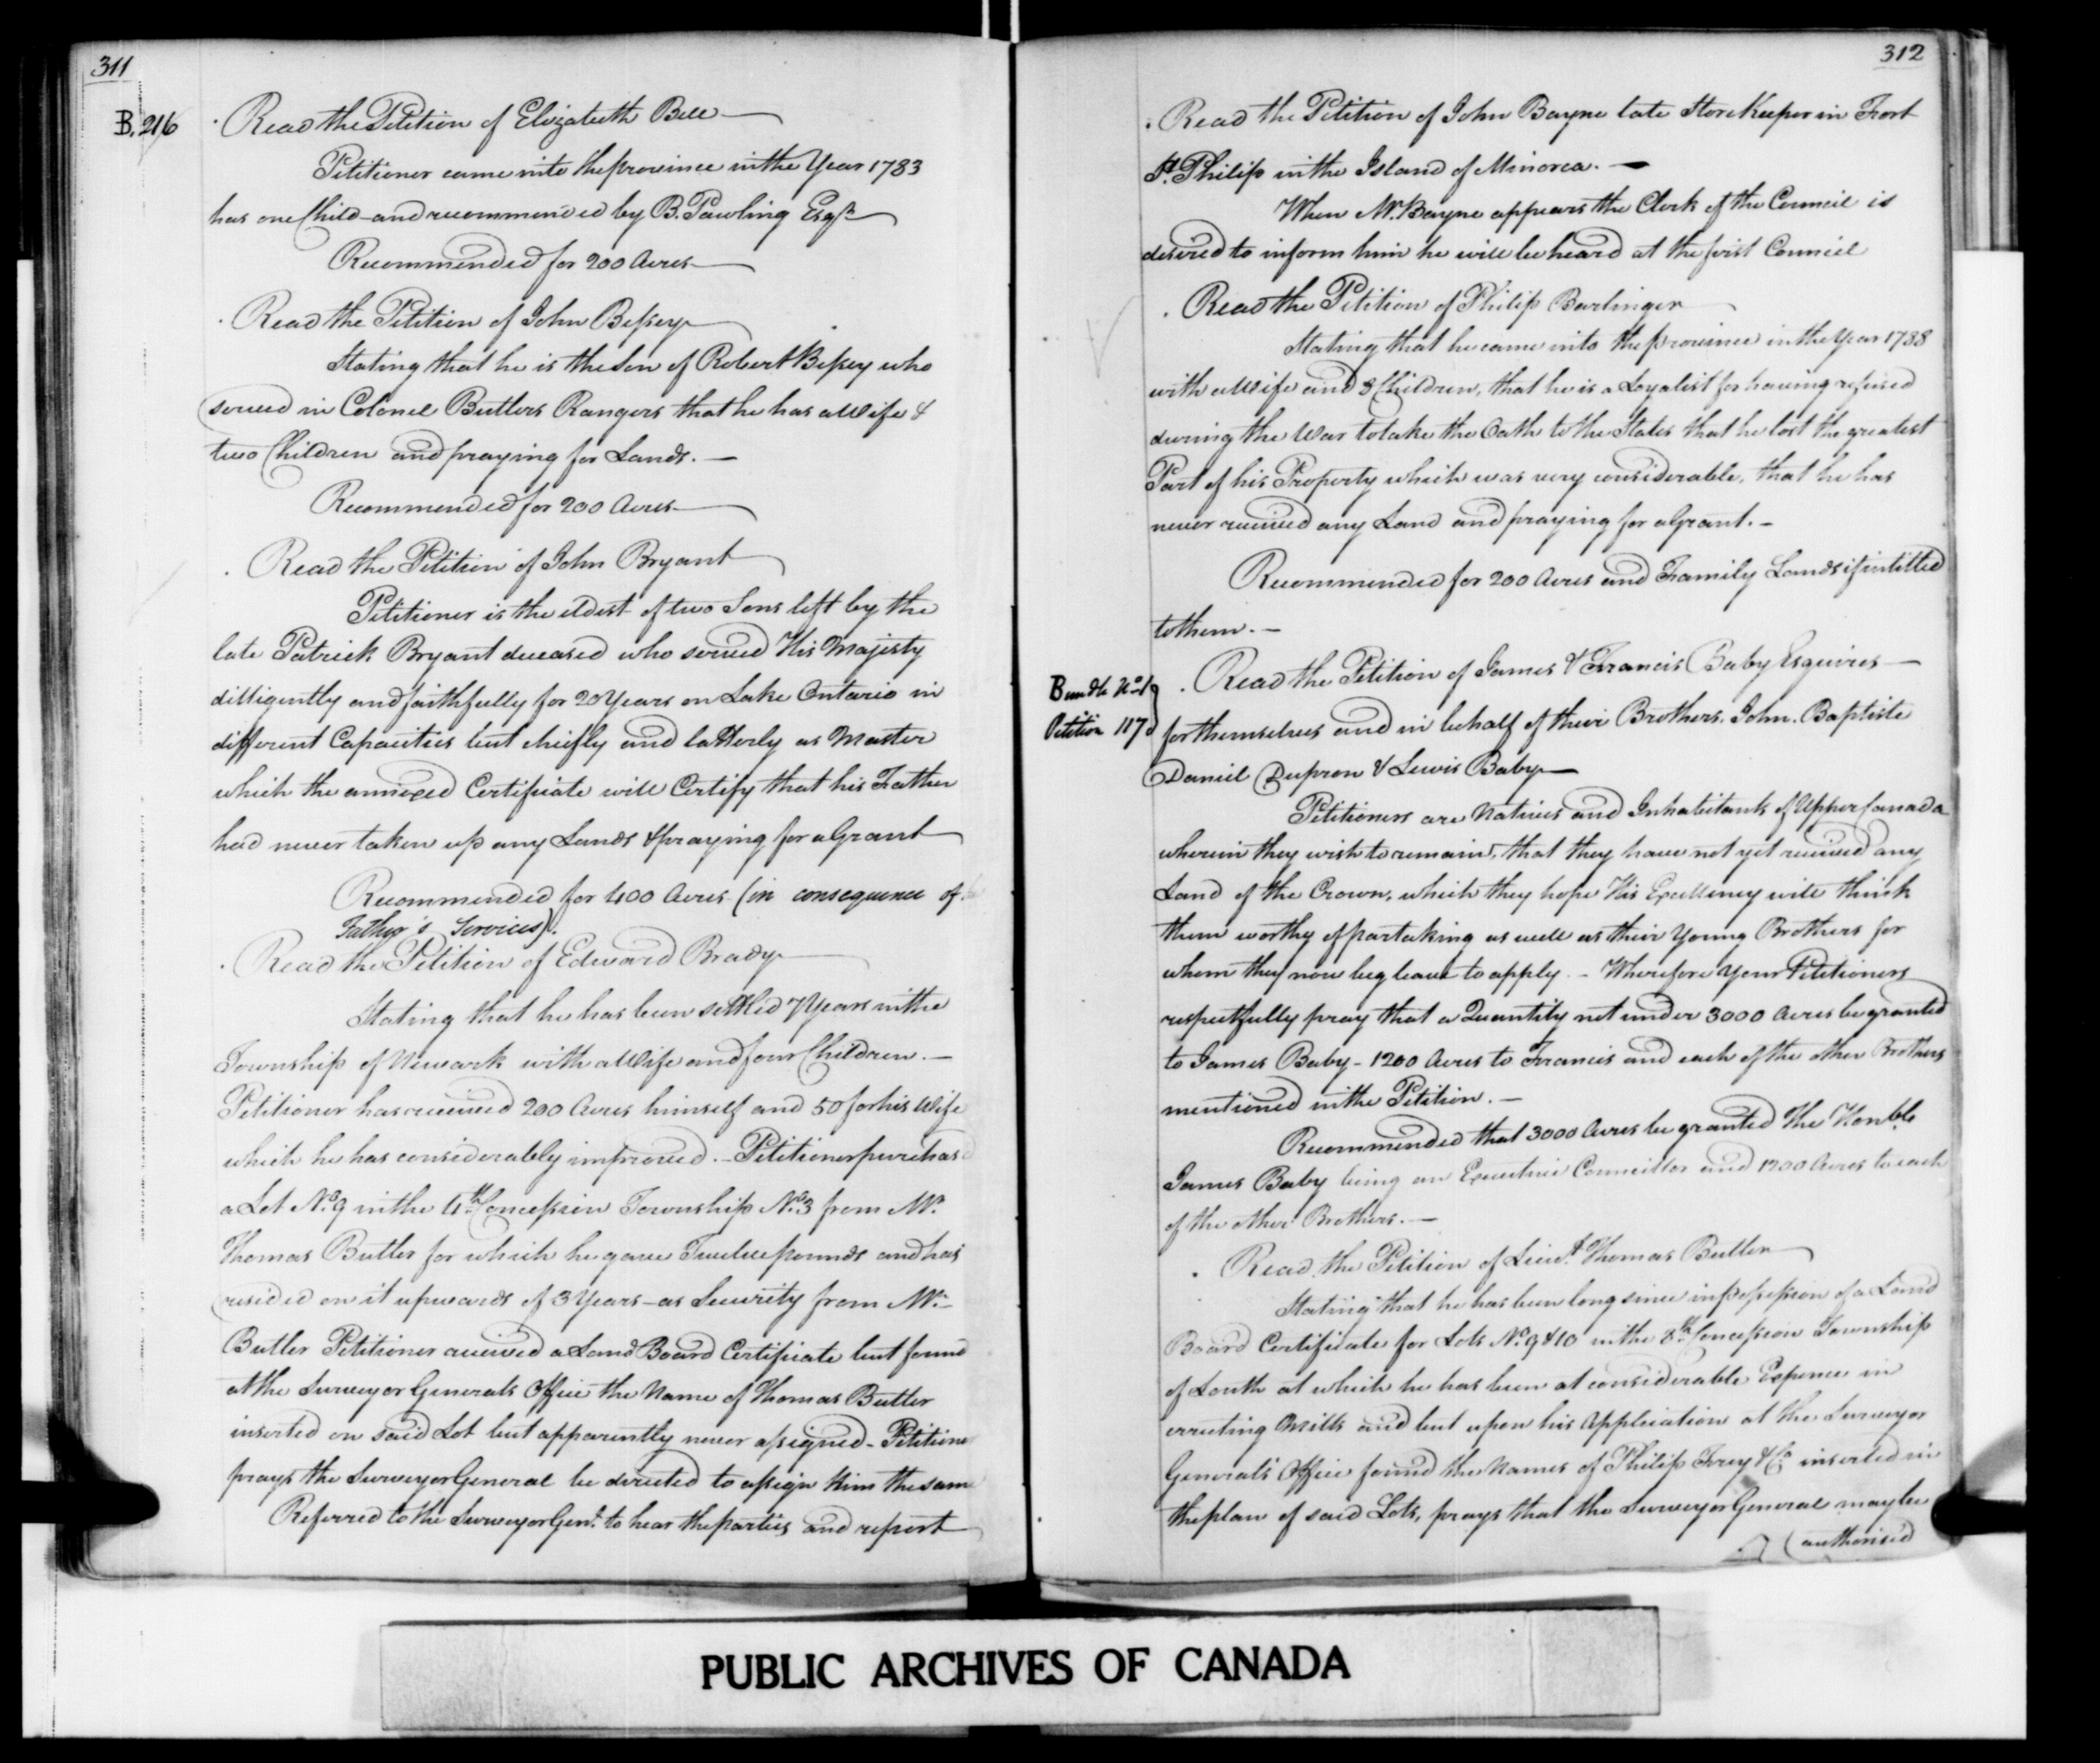 311
B. 216
Read the Petition of Elizabeth Bell
Petitioner came into the province in the Year 1783
has one Child and recommended by B. Pawling Esqr.
Recommended for 200 Acres
Read the Petition of John Bessey
Stating that he is the Son of Robert Bessey who
served in Colonel Butlers Rangers that he has a Wife &
two Children and praying for Lands.
Recommended for 200 Acres
Read the Petition of John Bryant
Petitioner is the eldest of two Sons left by the
late Patrick Bryant deceased who served His Majesty
dilligently and faithfully for 20 Years on Lake Ontario in
different Capacities but chiefly and latterly as Master
which the annexed Certificate will Certify that his Father
had never taken up any Lands & praying for a Grant
Recommended for 400 Acres (in consequence of
Father's Services).
Read the Petition of Edward Brady
Stating that he has been settled 7 Years in the
Township of Newark with a Wife and four Children.
Petitioner has received 200 Acres himself and 50 for his Wife
which he has considerably improved. - Petitioner purchased
a Lot No. 9 in the 4th Concession Township No. 3 from Mr.
Thomas Butler for which he gave Twelve pounds and has
resided on it upwards of 3 Years - as Security from Mr.
Butler Petitioner received a Land Board Certificate but found
at the Surveyor Generals Office the Name of Thomas Butler
inserted on said Lot but apparently never assigned - Petitioner
prays the Surveyor General be directed to assign Him the same
Referred to the Surveyor Genl. to hear the parties and report
312
Read the Petition of John Bayne late Store Keeper in Fort
St. Philip in the Island of Minorca. -
When Mr. Bayne appears the Clerk of the Council is
desired to inform him he will be heard at the first Council
Read the Petition of Philip Barlinger
Stating that he came into the province in the Year 1788
with a Wife and 3 Children, that he is a Loyalist for having refused
during the War to take the Oath to the States that he lost the greatest
Part of his Property which was very considerable, that he has
never received any Land and praying for a Grant. -
Recommended for 200 Acres and Family Lands if intitled
to them. -
Bundle No. 1
Petition 117
Read the Petition of James & Francis Baby Esquires
for themselves and in behalf of their Brothers, John. Baptiste
Daniel Dupron & Lewis Baby
Petitioners are Natives and Inhabitants of Upper Canada
wherein they wish to remain, that they have not yet received any
Land of the Crown, which they hope His Excellency will think
them worthy of partaking as well as their Young Brothers for
whom they now beg leave to apply. - Wherefore Your Petitioners
respectfully pray that a Quantity not under 3000 Acres be granted
to James Baby - 1200 Acres to Francis and each of the other Brothers
mentioned in the Petition. -
Recommended that 3000 Acres be granted The Honble
James Baby being an Executive Councillor and 1200 Acres to each
of the other Brothers. -
Read the Petition of Lieut. Thomas Butler
Stating that he has been long since in possession of a Land
Board Certificate for Lots No. 9 & 10 in the 8th Concession Township
of Louth at which he has been at considerable Expence in
errecting Mills and but upon his Application at the Surveyor
Generals Office found the Names of Philip Frey & Co inserted in
the plan of said Lots, prays that the Surveyor General may be
authorised
PUBLIC ARCHIVES OF CANADA